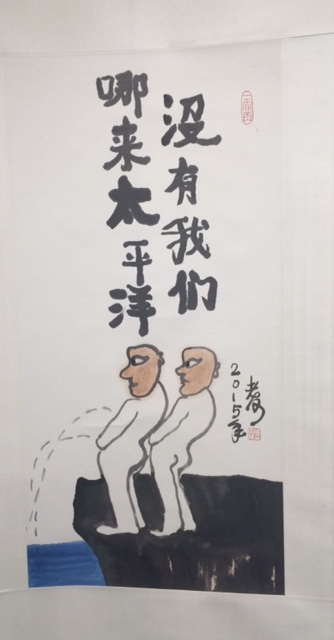 没有我们
哪来太平洋
2015年